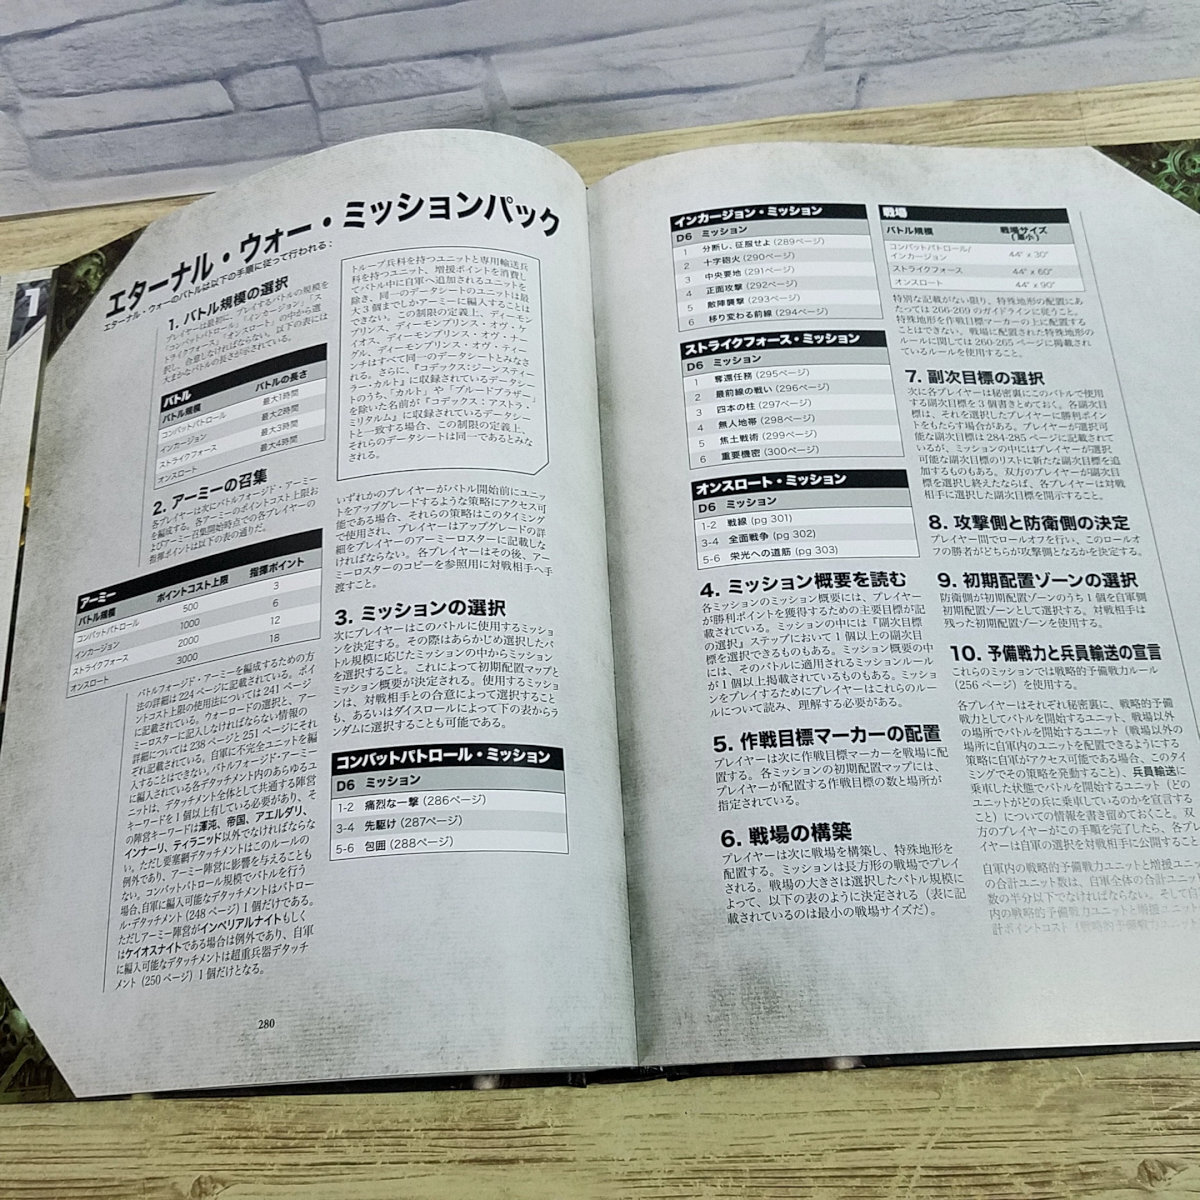 エターナル・ウォー・ミッションパック
エターナル・ウォーのバトルは以下の手順に従って行われる：
1. バトル規模の選択
プレイヤーは最初に、プレイするバトルの規模を
「コンバットパトロール」「インカージョン」「ス
トライクフォース」「オンスロート」の中から選
択し、合意しなければならない。以下の表には
大まかなバトルの長さが示されている。
バトル
バトル規模 バトルの長さ
コンバットパトロール 最大1時間
インカージョン 最大2時間
ストライクフォース 最大3時間
オンスロート 最大4時間
2. アーミーの召集
各プレイヤーは次にバトルフォージド・アーミー
を編成する。各アーミーのポイントコスト上限お
よびアーミー召集開始時点での各プレイヤーの
指揮ポイントは以下の表の通りだ。
アーミー
バトル規模 ポイントコスト上限 指揮ポイント
コンバットパトロール 500 3
インカージョン 1000 6
ストライクフォース 2000 12
オンスロート 3000 18
バトルフォージド・アーミーを編成するための方
法の詳細は 224 ページに記載されている。ポイ
ントコスト上限の使用法については 241 ページ
に記載されている。ウォーロードの選択と、アー
ミーロスターに記入しなければならない情報の
詳細については 238 ページと 251 ページにそれ
ぞれ記載されている。自軍に不完全ユニットを編
入することはできない。バトルフォージド・アーミー
に編入されている各デタッチメント内のあらゆるユ
ニットは、デタッチメント全体として共通する陣営
キーワードを 1 個以上有している必要があり、そ
の陣営キーワードは渾沌、帝国、アエルダリ、
インナーリ、ティラニッド以外でなければならな
い。ただし要塞網デタッチメントはこのルールの
例外であり、アーミー陣営に影響を与えることも
ない。コンバットパトロール規模でバトルを行う
場合、自軍に編入可能なデタッチメントはパトロー
ル・デタッチメント（248 ページ）1 個だけである。
ただしアーミー陣営がインペリアルナイトもしく
はケイオスナイトである場合は例外であり、自軍
に編入可能なデタッチメントは超重兵器デタッチ
メント（250 ページ）1 個だけとなる。
280
トループ兵科を持つユニットと専用輸送兵
科を持つユニット、増援ポイントを消費し
てバトル中に自軍へ追加されるユニットを
除き、同一のデータシートのユニットは最
大 3 個までしかアーミーに編入することは
できない。この制限の定義上、ディーモン
プリンス、ディーモンプリンス・オヴ・ケ
イオス、ディーモンプリンス・オヴ・ナー
グル、ディーモンプリンス・オヴ・ティー
ンチはすべて同一のデータシートとみなさ
れる。さらに、『コデックス：ジーンスティー
ラー・カルト』に収録されているデータシー
トのうち、「カルト」や「ブルードブラザー」
を除いた名前が『コデックス：アストラ・
ミリタルム』に収録されているデータシー
トと一致する場合、この制限の定義上、
それらのデータシートは同一であるとみな
される。
いずれかのプレイヤーがバトル開始前にユニッ
トをアップグレードするような策略にアクセス可
能である場合、それらの策略はこのタイミング
で使用され、プレイヤーはアップグレードの詳
細をプレイヤーのアーミーロスターに記載しな
ければならない。各プレイヤーはその後、アー
ミーロスターのコピーを参照用に対戦相手へ手
渡すこと。
3. ミッションの選択
次にプレイヤーはこのバトルに使用するミッショ
ンを決定する。その際はあらかじめ選択したバ
トル規模に応じたミッションの中からミッション
を選択すること。これによって初期配置マップと
ミッション概要が決定される。使用するミッショ
ンは、対戦相手との合意によって選択すること
も、あるいはダイスロールによって下の表からラ
ンダムに選択することも可能である。
コンバットパトロール・ミッション
D6 ミッション
1-2 痛烈な一撃（286ページ）
3-4 先駆け（287ページ）
5-6 包囲（288ページ）
インカージョン・ミッション
D6 ミッション
1 分断し、征服せよ（289ページ）
2 十字砲火（290ページ）
3 中央要地（291ページ）
4 正面攻撃（292ページ）
5 敵陣襲撃（293ページ）
6 移り変わる前線（294ページ）
ストライクフォース・ミッション
D6 ミッション
1 奪還任務（295ページ）
2 最前線の戦い（296ページ）
3 四本の柱（297ページ）
4 無人地帯（298ページ）
5 焦土戦術（299ページ）
6 重要機密（300ページ）
オンスロート・ミッション
D6 ミッション
1-2 戦線（pg 301）
3-4 全面戦争（pg 302）
5-6 栄光への道筋（pg 303）
4. ミッション概要を読む
各ミッションのミッション概要には、プレイヤー
が勝利ポイントを獲得するための主要目標が記
載されている。ミッションの中には『副次目標
の選択』ステップにおいて 1 個以上の副次目
標を選択できるものもある。ミッション概要の中
には、そのバトルに適用されるミッションルール
が 1 個以上掲載されているものもある。ミッショ
ンをプレイするためにプレイヤーはこれらのルー
ルについて読み、理解する必要がある。
5. 作戦目標マーカーの配置
プレイヤーは次に作戦目標マーカーを戦場に配
置する。各ミッションの初期配置マップには、
プレイヤーが配置する作戦目標の数と場所が
指定されている。
6. 戦場の構築
プレイヤーは次に戦場を構築し、特殊地形を
配置する。ミッションは長方形の戦場でプレイ
される。戦場の大きさは選択したバトル規模に
よって、以下の表のように決定される（表に記
載されているのは最小の戦場サイズだ）。
戦場
バトル規模 戦場サイズ（最小）
コンバットパトロール/インカージョン 44" x 30"
ストライクフォース 44" x 60"
オンスロート 44" x 90"
特別な記載がない限り、特殊地形の配置にあ
たっては 266-269 のガイドラインに従うこと。
特殊地形を作戦目標マーカーの上に配置する
ことはできない。戦場に配置された特殊地形の
ルールに関しては 260-265 ページに掲載され
ているルールを使用すること。
7. 副次目標の選択
次に各プレイヤーは秘密裏にこのバトルで使用
する副次目標を 3 個書きとめておく。各副次目
標は、それを選択したプレイヤーに勝利ポイン
トをもたらす場合がある。プレイヤーが選択可
能な副次目標は 284-285 ページに記載されて
いるが、ミッションの中にはプレイヤーが選択
可能な副次目標のリストに新たな副次目標を追
加するものもある。双方のプレイヤーが副次目
標を選択し終えたならば、各プレイヤーは対戦
相手に選択した副次目標を開示すること。
8. 攻撃側と防衛側の決定
プレイヤー間でロールオフを行い、このロールオ
フの勝者がどちらが攻撃側となるかを決定する。
9. 初期配置ゾーンの選択
防衛側が初期配置ゾーンのうち 1 個を自軍側
初期配置ゾーンとして選択する。対戦相手は
残った初期配置ゾーンを使用する。
10. 予備戦力と兵員輸送の宣言
これらのミッションでは戦略的予備戦力ルール
（256 ページ）を使用する。
各プレイヤーはそれぞれ秘密裏に、戦略的予備
戦力としてバトルを開始するユニット、戦場以外
の場所でバトルを開始するユニット（戦場以外の
場所に自軍内のユニットを配置できるようにする
策略に自軍がアクセス可能である場合、このタイ
ミングでその策略を発動すること）、兵員輸送に
乗車した状態でバトルを開始するユニット（どの
ユニットがどの兵に乗車しているのかを宣言する
こと）についての情報を書き留めておくこと。双
方のプレイヤーがこの手順を完了したら、各プレ
イヤーは自軍の選択を対戦相手に公開すること
自軍内の戦略的予備戦力ユニットと増援ユニ
の合計ユニット数は、自軍全体の合計ユニット
数の半分以下でなければならない。そして自
内の戦略的予備戦力ユニットと増援ユニット
計ポイントコスト（戦略的予備戦力ユニット